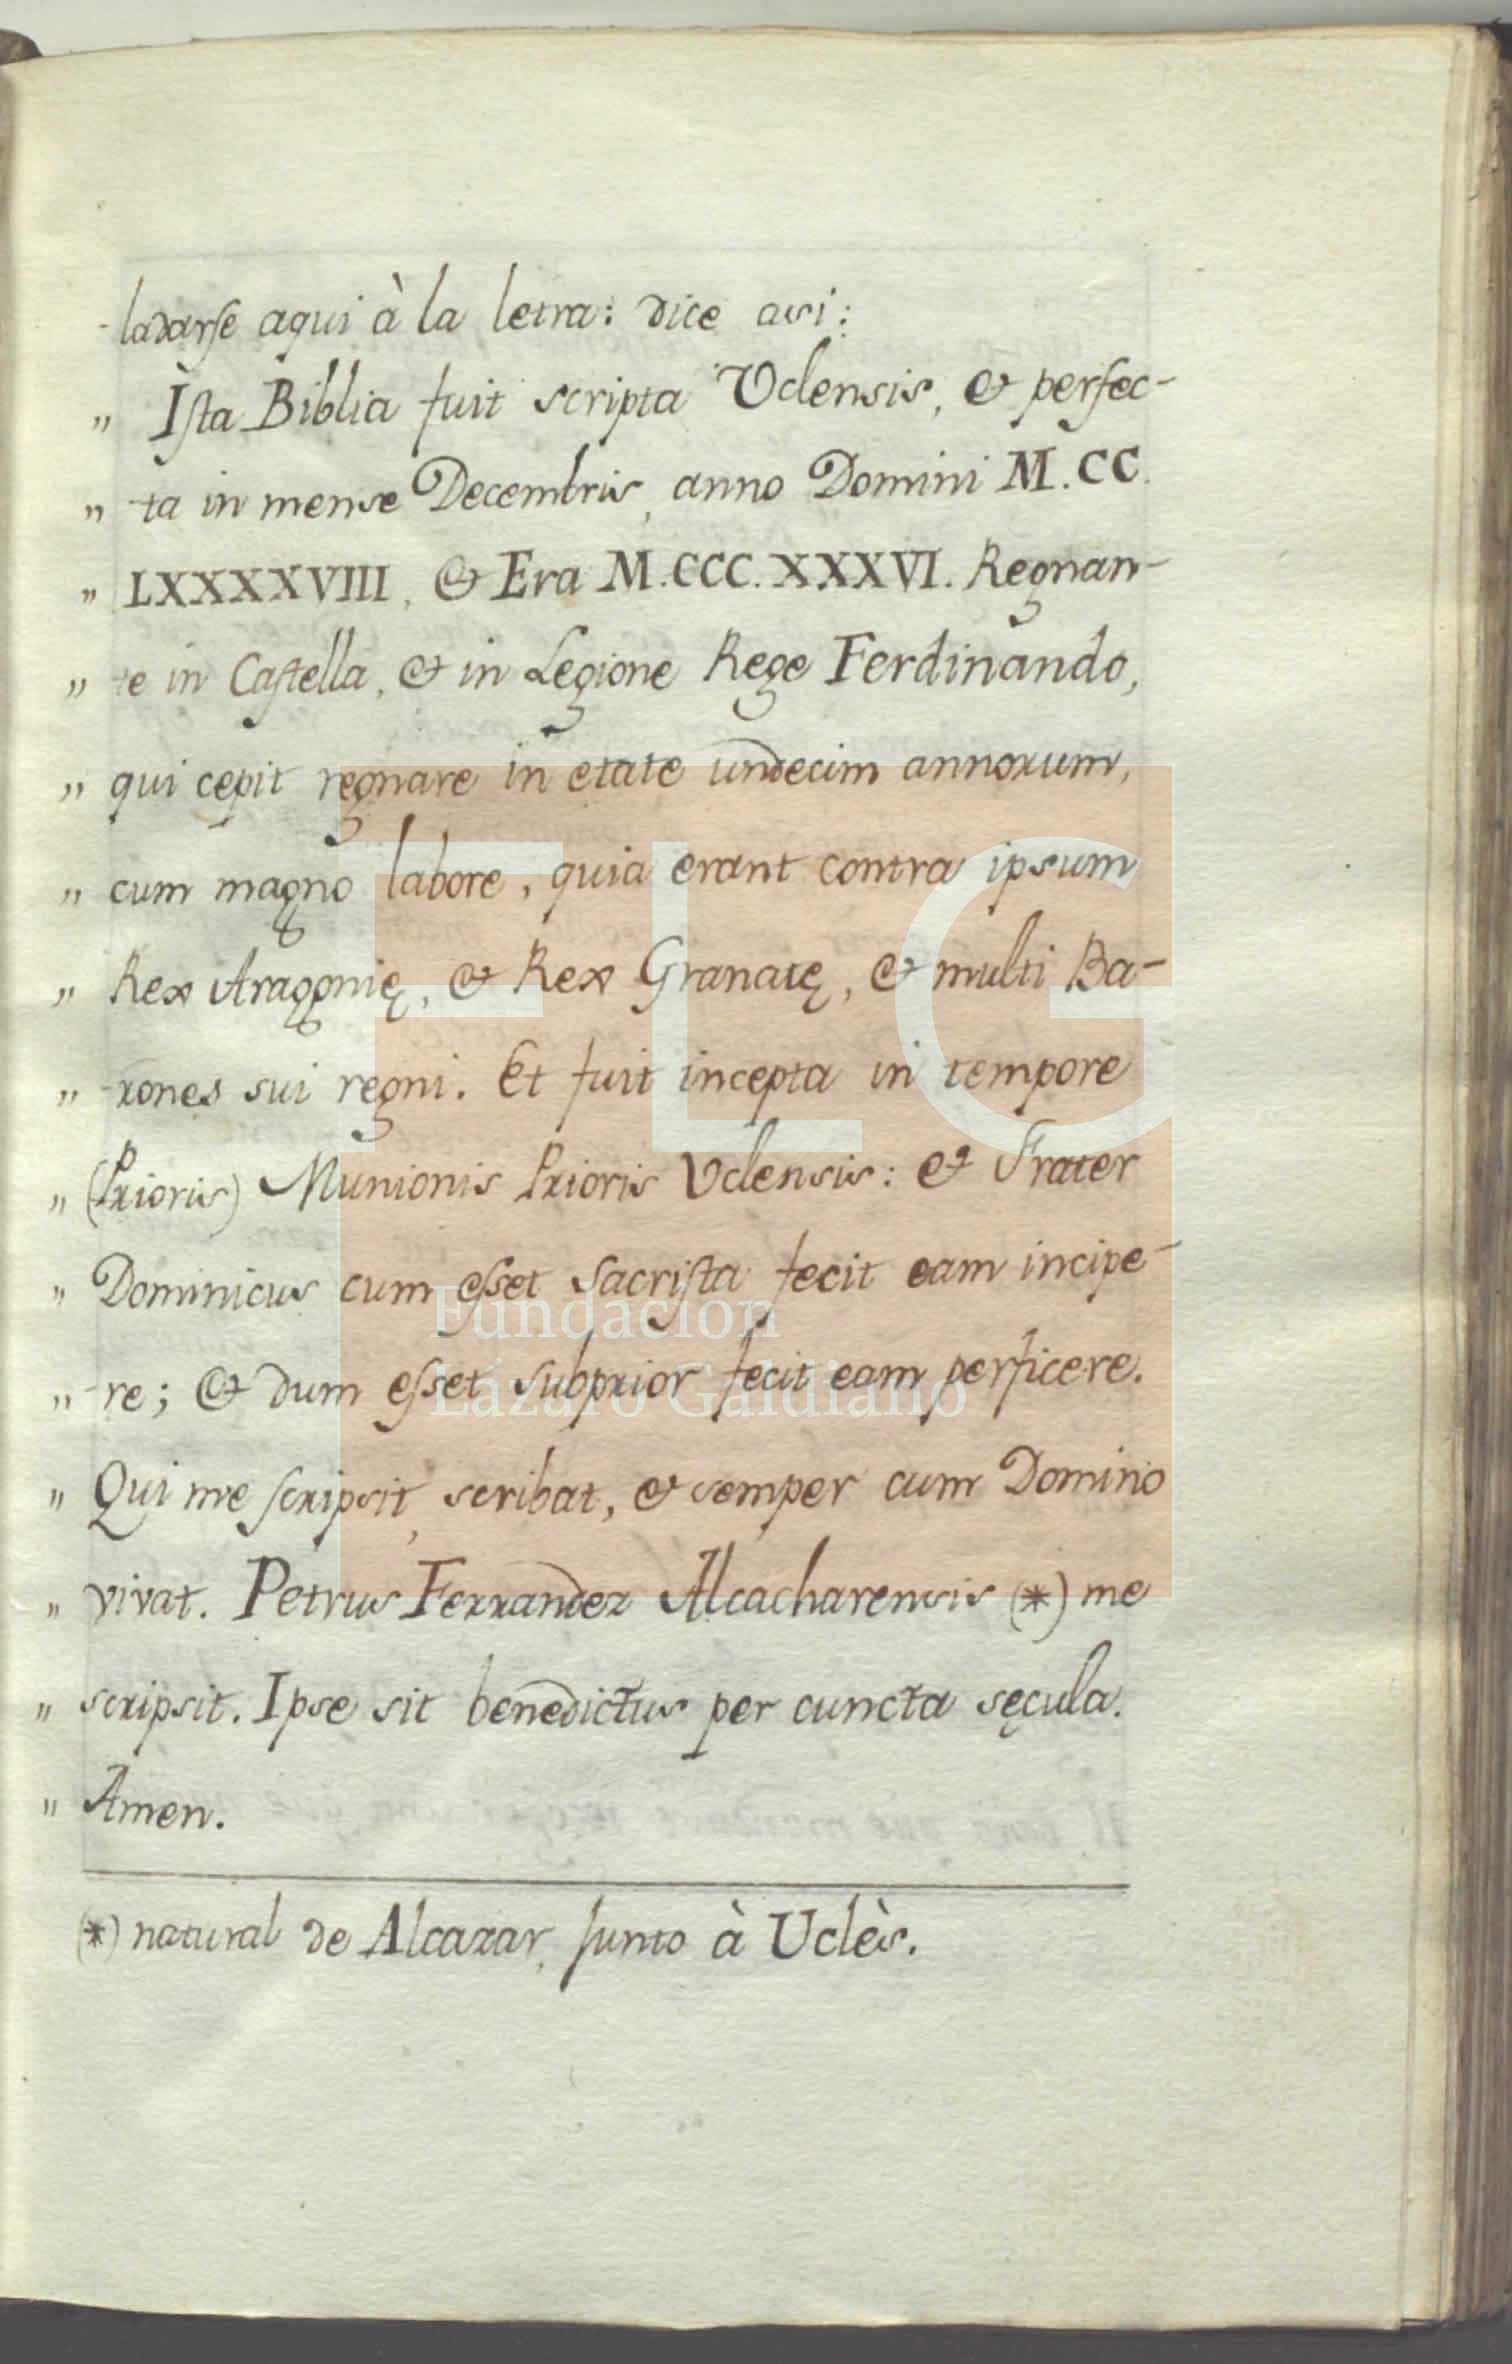 -ladarse aqui à la letra: dice asi:
" Ista Biblia fuit scripta Uclensis, & perfec-
" -ta in mense Decembris, anno Domini M.CC.
" LXXXXVIII, & Era M.CCC.XXXVI. Regnan-
" -te in Castella, & in Legione Rege Ferdinando,
" qui cępit regnare in etate undecim annorum,
" cum magno labore, quia erant contra ipsum
" Rex Aragonię, & Rex Granatę, & multi Ba-
" -rones sui regni. Et fuit incepta in tempore
" (Prioris) Munionis Prioris Uclensis: & Frater
" Dominicus cum esset Sacrista fecit eam incipe-
" -re; & dum esset subprior fecit eam perficere.
" Qui me scripsit, scribat, & semper cum Domino
" vivat. Petrus Ferrandez Alcacharensis (*) me
" scripsit. Ipse sit benedictus per cuncta sęcula.
" Amen.
(*) natural de Alcazar, junto à Uclès.
FLG
Fundación
Lázaro Galdiano